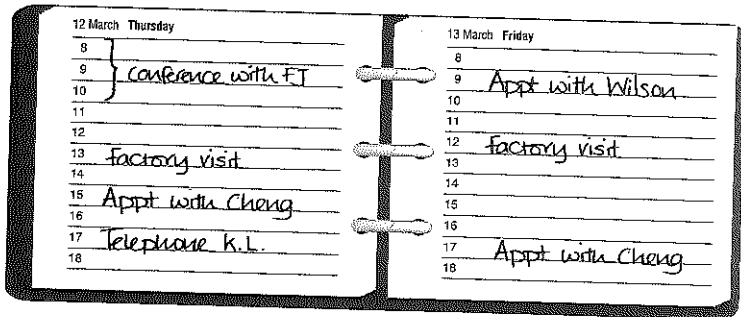 12 March Thursday
8
9 Conference with FJ
10
11
12
13 Factory visit
14
15 Appt with Cheng
16
17 Telephone K.L.
18
13 March Friday
8
9 Appt with Wilson
10
11
12 Factory visit
13
14
15
16
17 Appt with Cheng
18